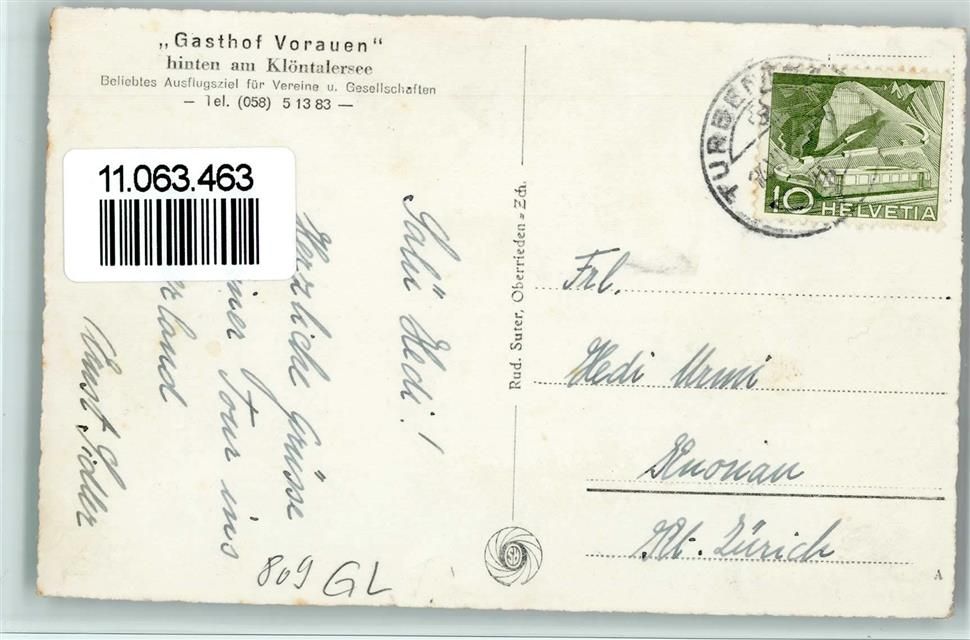 „Gasthof Vorauen“
hinten am Klöntalersee
Beliebtes Ausflugsziel für Vereine u. Gesellschaften
— Tel. (058) 5 13 83 —
11.063.463
Salü Hedi!
Herzliche Grüsse
Tour ins
Ernst Sidler
809 GL
Rud. Suter, Oberrieden=Zch.
SB
TURBENTHAL
10 HELVETIA
Frl.
Hedi Urmi
Kt. Zürich
A